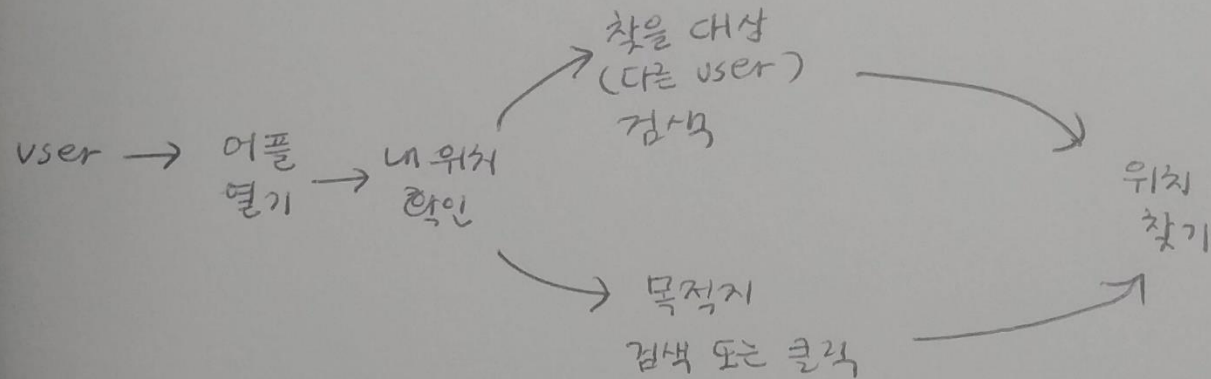 user → 어플
열기 → 내 위치
확인
찾을 대상
(다른 user)
검색
목적지
검색 또는 클릭
위치
찾기